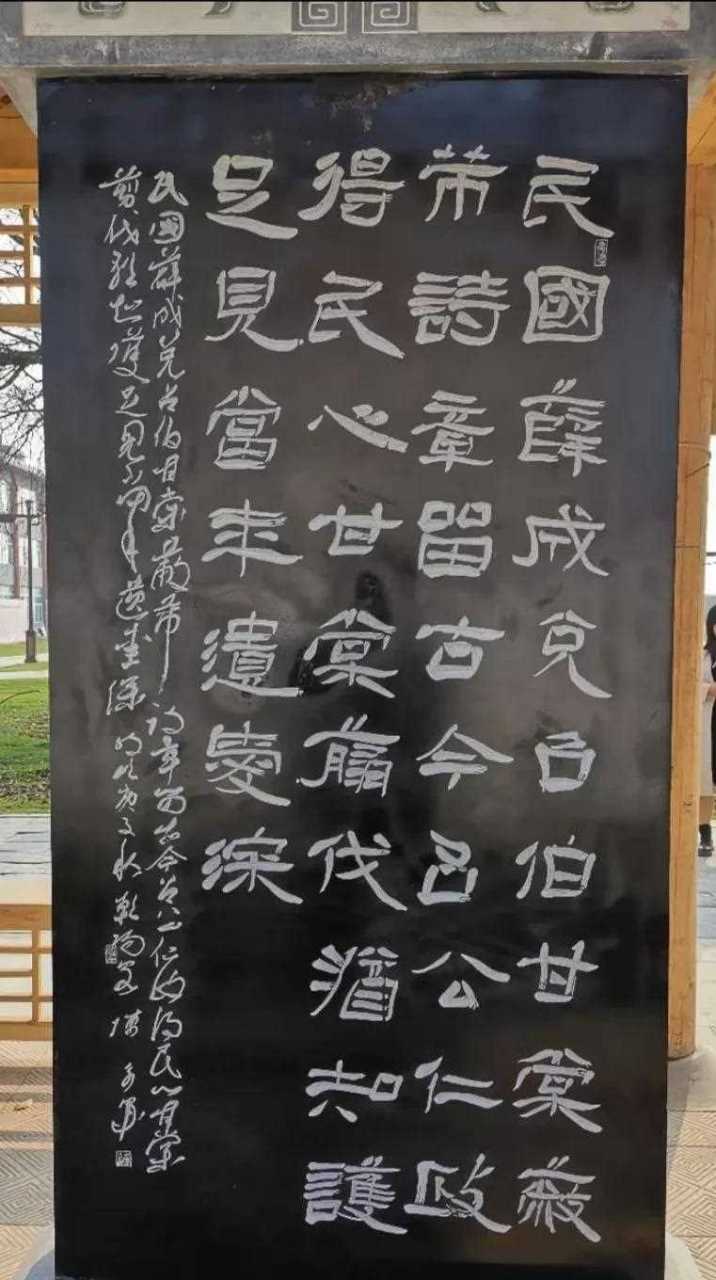 民國薛成兌召伯甘棠蔽
芾詩章留古今召公仁政
得民心甘棠翦伐猶知護
足見當年遺愛深
民國薛成兌召伯甘棠蔽芾詩章留古今召公仁政得民心甘棠
翦伐猶知護足見當年遺愛深